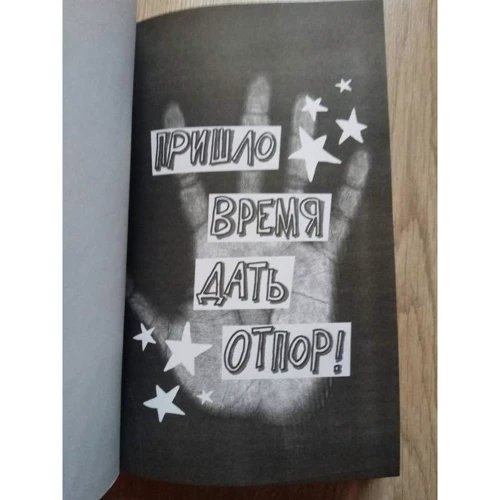 ПРИШЛО
ВРЕМЯ
ДАТЬ
ОТПОР!